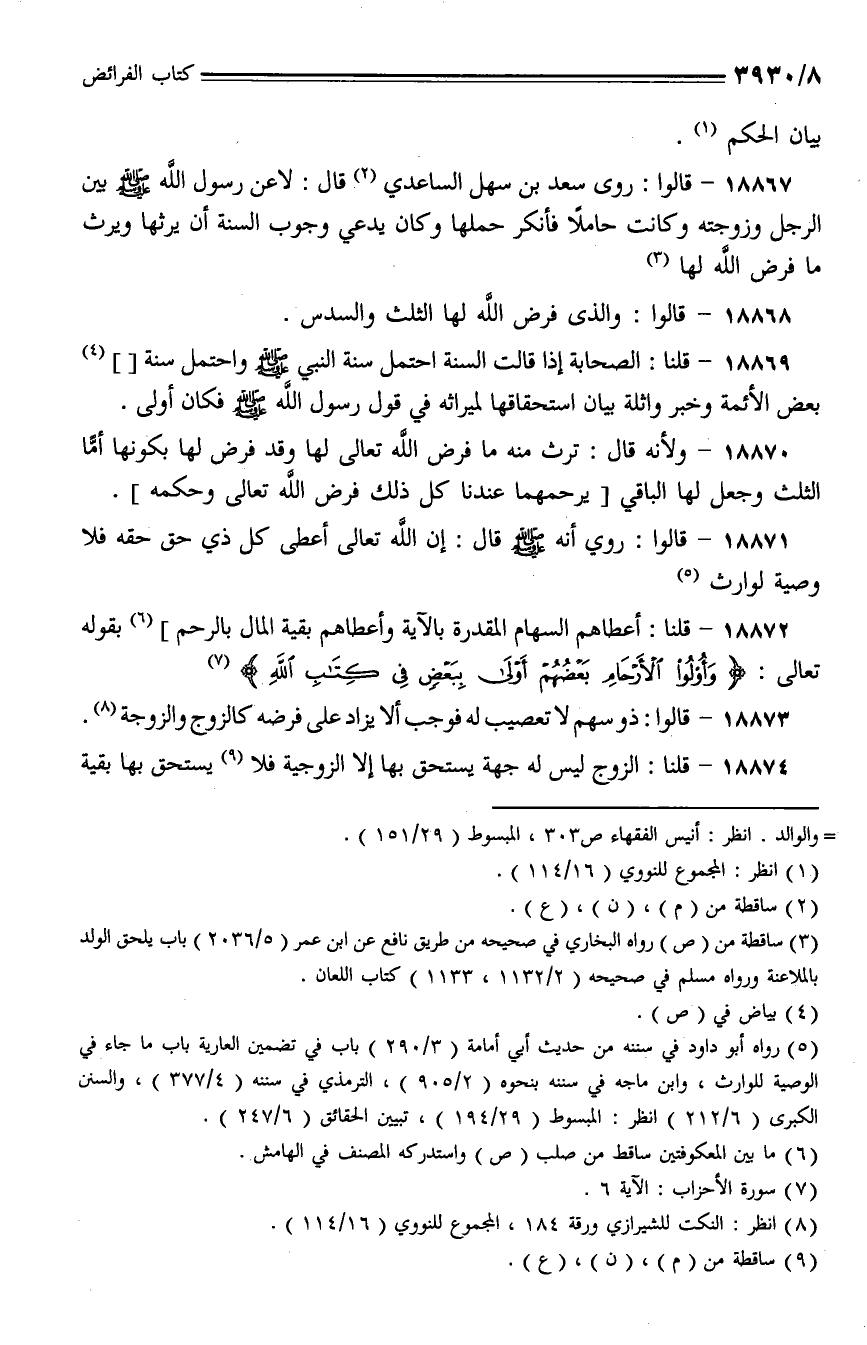 ٣٩٣٠/٨ كتاب الفرائض
بيان الحكم (١) .
١٨٨٦٧ - قالوا : روى سعد بن سهل الساعدي (٢) قال : لاعن رسول اللَّه ﷺ بين
الرجل وزوجته وكانت حاملًا فأنكر حملها وكان يدعي وجوب السنة أن يرثها ويرث
ما فرض اللَّه لها (٣)
١٨٨٦٨ - قالوا : والذى فرض اللَّه لها الثلث والسدس .
١٨٨٦٩ - قلنا : الصحابة إذا قالت السنة احتمل سنة النبي ﷺ واحتمل سنة [ ] (٤)
بعض الأئمة وخبر واثلة بيان استحقاقها لميراثه في قول رسول اللَّه ﷺ فكان أولى .
١٨٨٧٠ - ولأنه قال : ترث منه ما فرض اللَّه تعالى لها وقد فرض لها بكونها أمًّا
الثلث وجعل لها الباقي [ يرحمهما عندنا كل ذلك فرض اللَّه تعالى وحكمه ] .
١٨٨٧١ - قالوا : روي أنه ﷺ قال : إن اللَّه تعالى أعطى كل ذي حق حقه فلا
وصية لوارث (٥)
١٨٨٧٢ - قلنا : أعطاهم السهام المقدرة بالآية وأعطاهم بقية المال بالرحم ] (٦) بقوله
تعالى : ﴿ وَأُوْلُواْ ٱلْأَرْحَامِ بَعْضُهُمْ أَوْلَىٰ بِبَعْضٍ فِي كِتَٰبِ ٱللَّهِ ﴾ (٧)
١٨٨٧٣ - قالوا : ذو سهم لا تعصيب له فوجب ألا يزاد على فرضه كالزوج والزوجة (٨) .
١٨٨٧٤ - قلنا : الزوج ليس له جهة يستحق بها إلا الزوجية فلا (٩) يستحق بها بقية
= والوالد . انظر : أنيس الفقهاء ص٣٠٣ ، المبسوط ( ١٥١/٢٩ ) .
(١) انظر : المجموع للنووي ( ١١٤/١٦ ) .
(٢) ساقطة من ( م ) ، ( ن ) ، ( ع ) .
(٣) ساقطة من ( ص ) رواه البخاري في صحيحه من طريق نافع عن ابن عمر ( ٢٠٣٦/٥ ) باب يلحق الولد
بالملاعنة ورواه مسلم في صحيحه ( ١١٣٢/٢ ، ١١٣٣ ) كتاب اللعان .
(٤) بياض في ( ص ) .
(٥) رواه أبو داود في سننه من حديث أبي أمامة ( ٢٩٠/٣ ) باب في تضمين العارية باب ما جاء في
الوصية للوارث ، وابن ماجه في سننه بنحوه ( ٩٠٥/٢ ) ، الترمذي في سننه ( ٣٧٧/٤ ) ، والسنن
الكبرى ( ٢١٢/٦ ) انظر : المبسوط ( ١٩٤/٢٩ ) ، تبيين الحقائق ( ٢٤٧/٦ ) .
(٦) ما بين المعكوفتين ساقط من صلب ( ص ) واستدركه المصنف في الهامش .
(٧) سورة الأحزاب : الآية ٦ .
(٨) انظر : النكت للشيرازي ورقة ١٨٤ ، المجموع للنووي ( ١١٤/١٦ ) .
(٩) ساقطة من ( م ) ، ( ن ) ، ( ع ) .